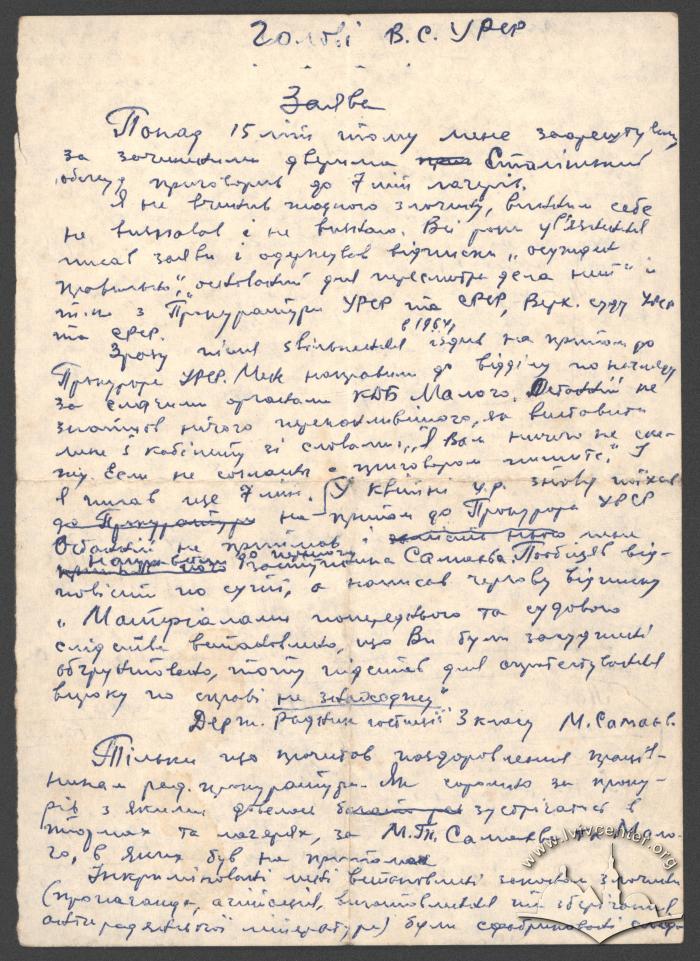 Голові В.С. УРСР
Заява
Понад 15 літ тому мене заарештували
за зачиненими дверима Сталінський
обл.суд приговорив до 7 літ лагерів.
Я не вчинив жодного злочину, винним себе
не визнавав і не визнаю. Всі роки ув'язнення
писав заяви і одержував відписки „осужден
правильно", „оснований для пересмотра дела нет" і
т.п. з Прокуратури УРСР та СРСР, Верх. суду УРСР
та СРСР.
Зразу після звільнення в 1964 р. їздив на прийом до
Прокурора УРСР. Мене направили до відділу по нагляду
за слідчими органами КДБ Малого. Останній не
знайшов нічого переконливішого, як виставити
мене з кабінету зі словами: „Я Вам ничего не ска-
жу. Если не согласны с приговором пишите." І
я писав ще 7 літ. У квітні ц.р. знову поїхав
до Прокуратури на прийом до Прокурора УРСР
Останній не прийняв і мене
направили до помічника Самаєва. Пообіцяв від-
повісти по суті, а написав чергову відписку
„Матеріалами попереднього та судового
слідства встановлено, що Ви були засуджені
обгрунтовано, тому підстав для опротестування
вироку по справі не знаходжу"
Держ. Радник юстиції 3 класу М. Самаєв.
Тільки що прочитав поздоровлення праців-
никам рад. прокуратури. Як соромно за проку-
рів з якими довелось зустрічатись в
тюрмах та лагерях, за М.Т. Самаєва та Мало-
го, в яких був на прийомах
Інкриміновані мені встановлені законом злочини
(пропаганда, агітація, виготовлення та зберігання
антирадянської літератури) були сфабриковані
www.lvivcenter.org